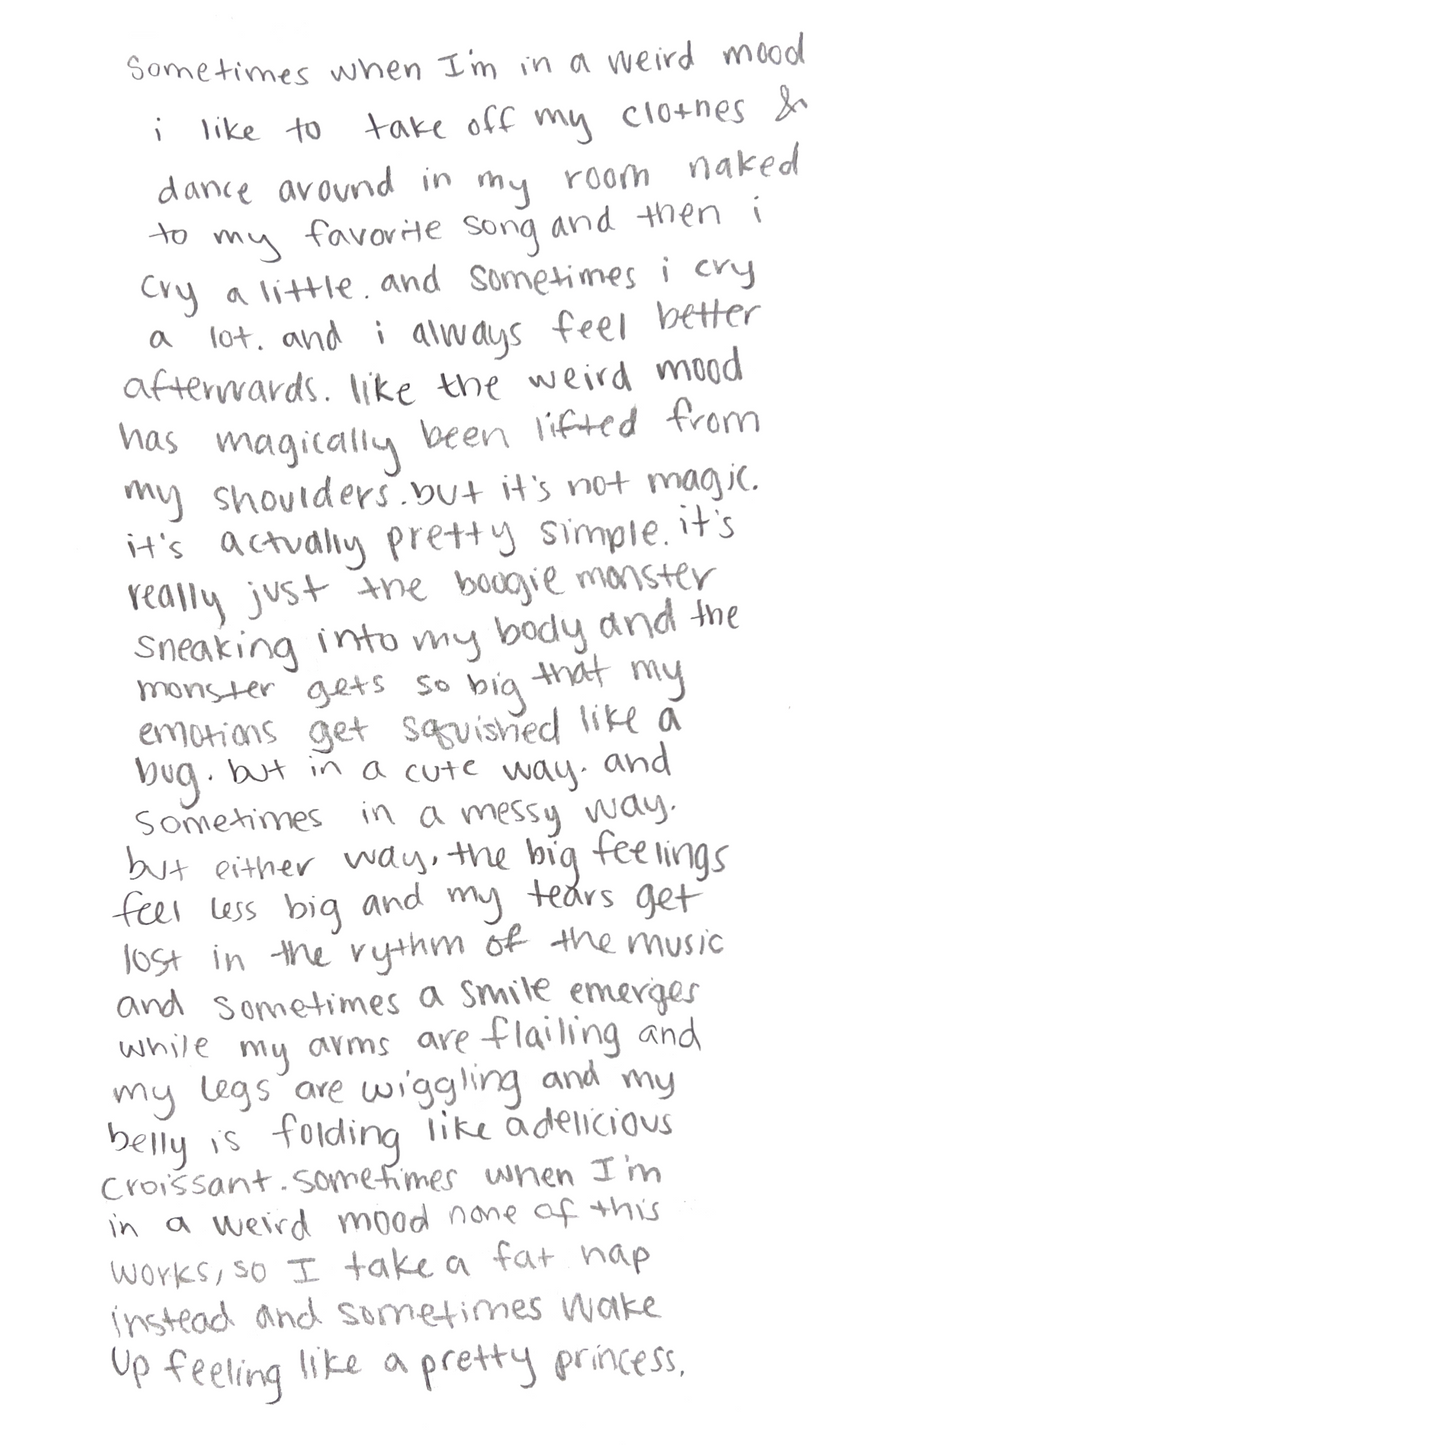 sometimes when I'm in a weird mood
i like to take off my clothes &
dance around in my room naked
to my favorite song and then i
cry a little. and sometimes i cry
a lot. and i always feel better
afterwards. like the weird mood
has magically been lifted from
my shoulders. but it's not magic.
it's actually pretty simple. it's
really just the boogie monster
sneaking into my body and the
monster gets so big that my
emotions get squished like a
bug. but in a cute way. and
sometimes in a messy way.
but either way, the big feelings
feel less big and my tears get
lost in the rythm of the music
and sometimes a smile emerges
while my arms are flailing and
my legs are wiggling and my
belly is folding like a delicious
croissant. sometimes when I'm
in a weird mood none of this
works, so I take a fat nap
instead and sometimes wake
up feeling like a pretty princess.